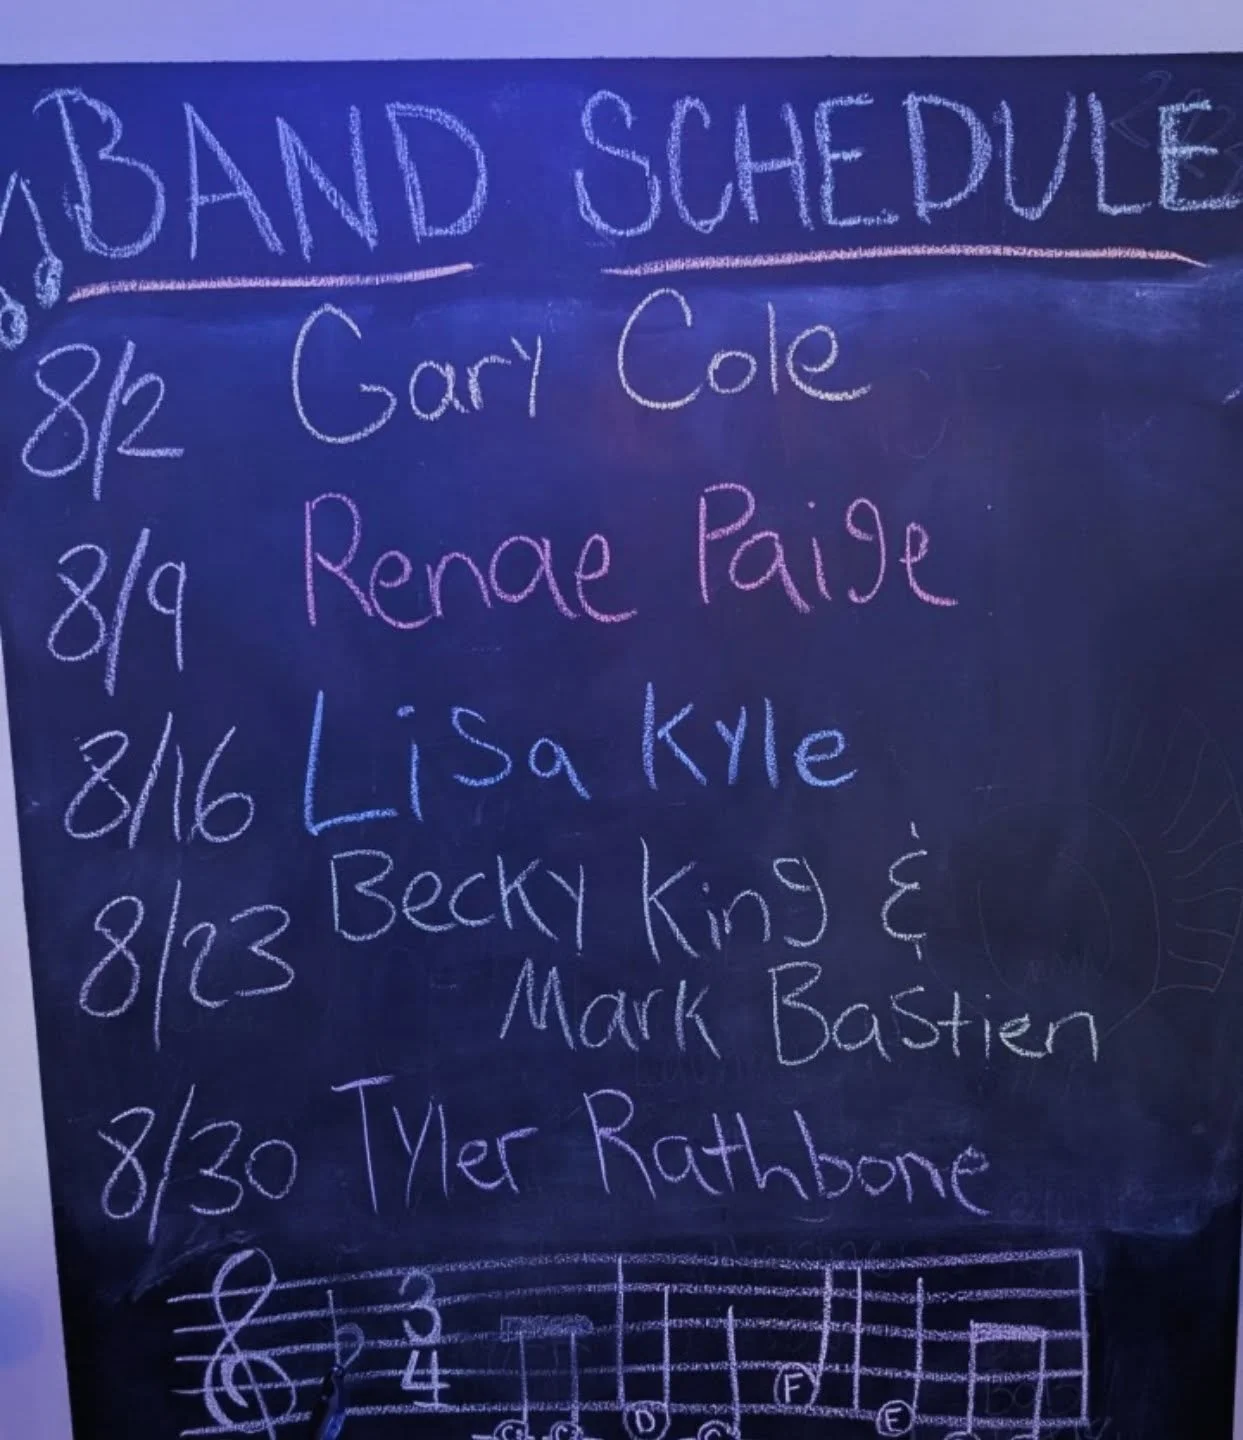 BAND SCHEDULE
8/2 Gary Cole
8/9 Renae Paige
8/16 Lisa Kyle
8/23 Becky King &
Mark Bastien
8/30 Tyler Rathbone
3
4
F
D C E
C C